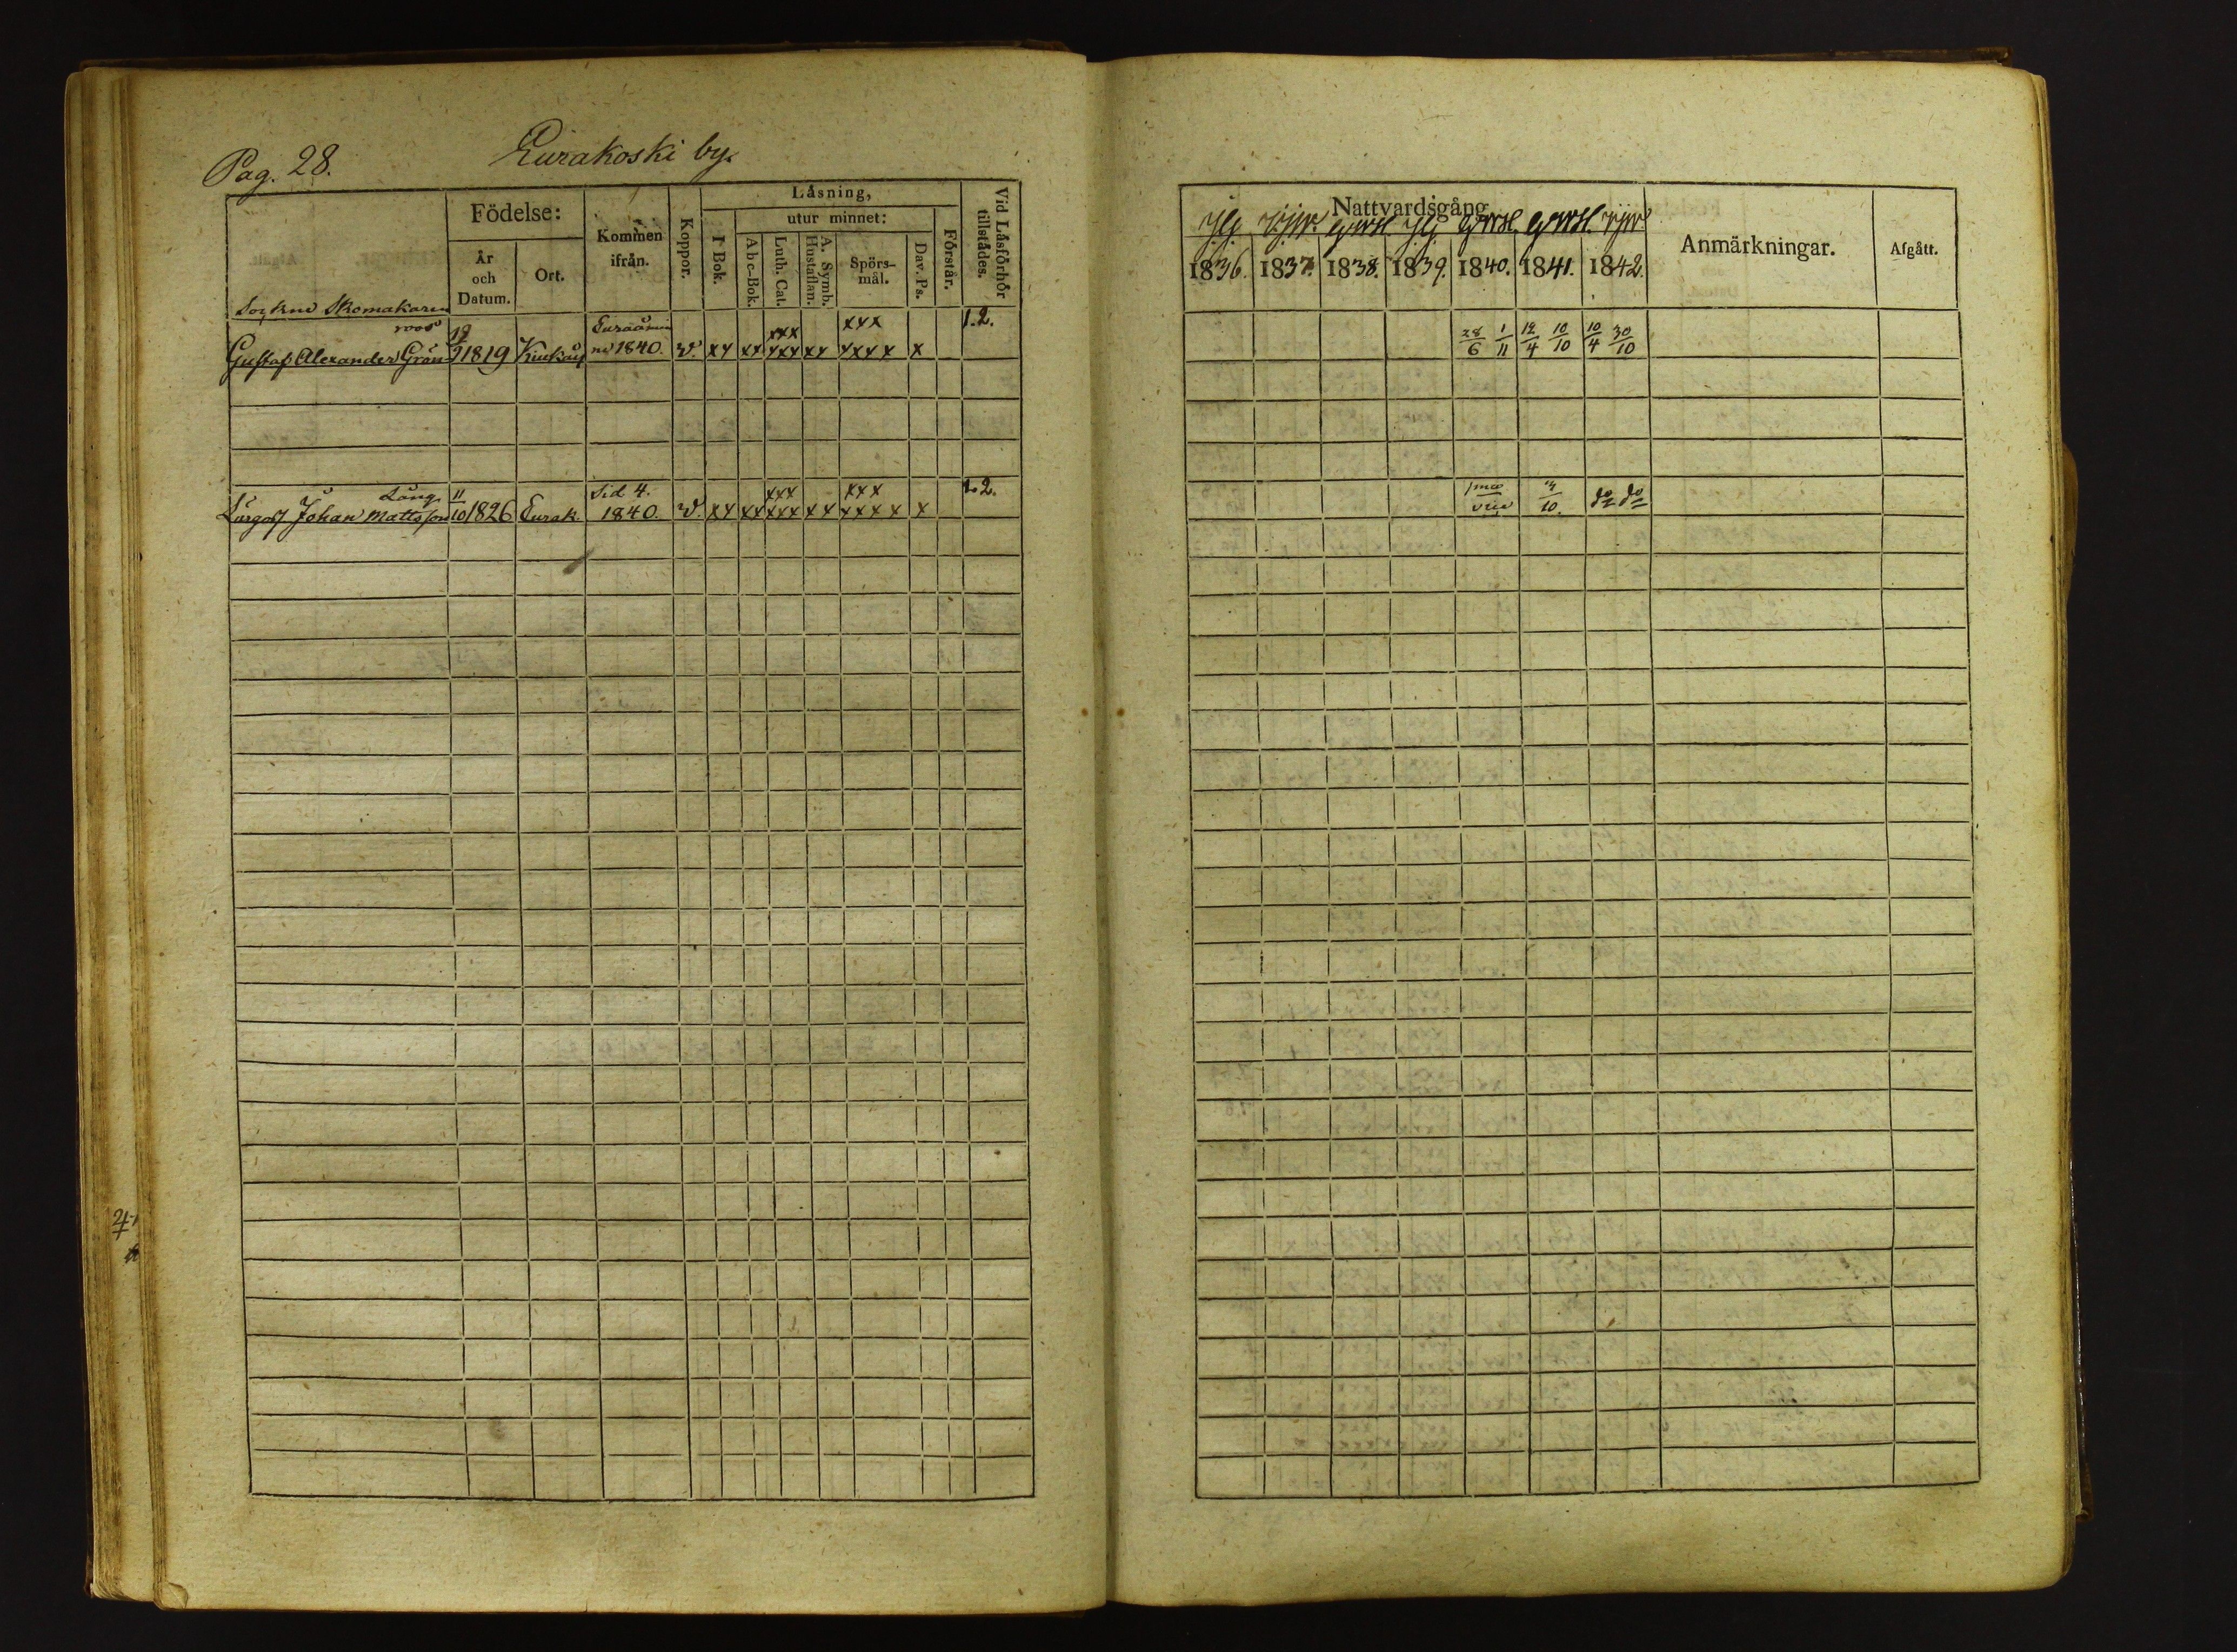 Pag. 28.
Eurakoski by.
Födelse:
År
och
Datum.
Ort.
Kommen
ifrån.
Koppor.
Läsning,
I Bok.
utur minnet:
Abc-Bok.
Luth. Cat.
A. Symb.
Hustaflan.
Spörs-
mål.
Dav. Ps.
Förstår.
Vid Läsförhör
tillstådes.
Sockne Skomakaren
roos xxx xxx 1.2.
Gustaf Alexander Grön 1819 1840. v. xx xx xxx xx xxxx x
Lång 11 Sid 4. xxx xxx 1.2.
Johan Mattsson 10 1826 Eurak. 1840. v. xx xx xxx xx xxxx x
Nattvardsgång
1836. 1837. 1838. 1839. 1840. 1841. 1842.
Anmärkningar.
Afgått.
28/6 1/11 12/4 10/10 10/4 30/10
do do